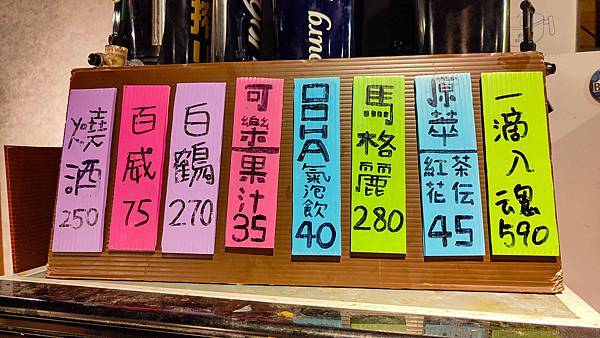 燒酒
250
百威
75
白鶴
270
可樂
果汁
35
OOHA
氣泡飲
40
馬格麗
280
原萃
紅花
茶伝
45
一滴入魂
590